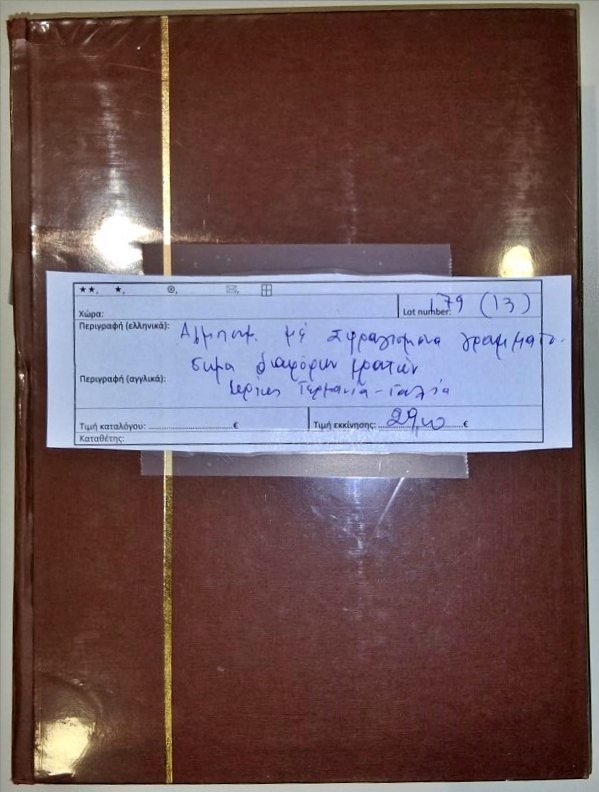 ★★, ★, ⊙, ✉ ⊞
Χώρα: Lot number: 179 (13)
Περιγραφή (ελληνικά): Αλμπουμ με σφραγισμενα γραμματο-
σημα διαφόρων κρατών
Περιγραφή (αγγλικά): κυρίως Γερμανία - Γαλλία
Τιμή καταλόγου: ........................€ Τιμή εκκίνησης: 29,00 €
Καταθέτης: